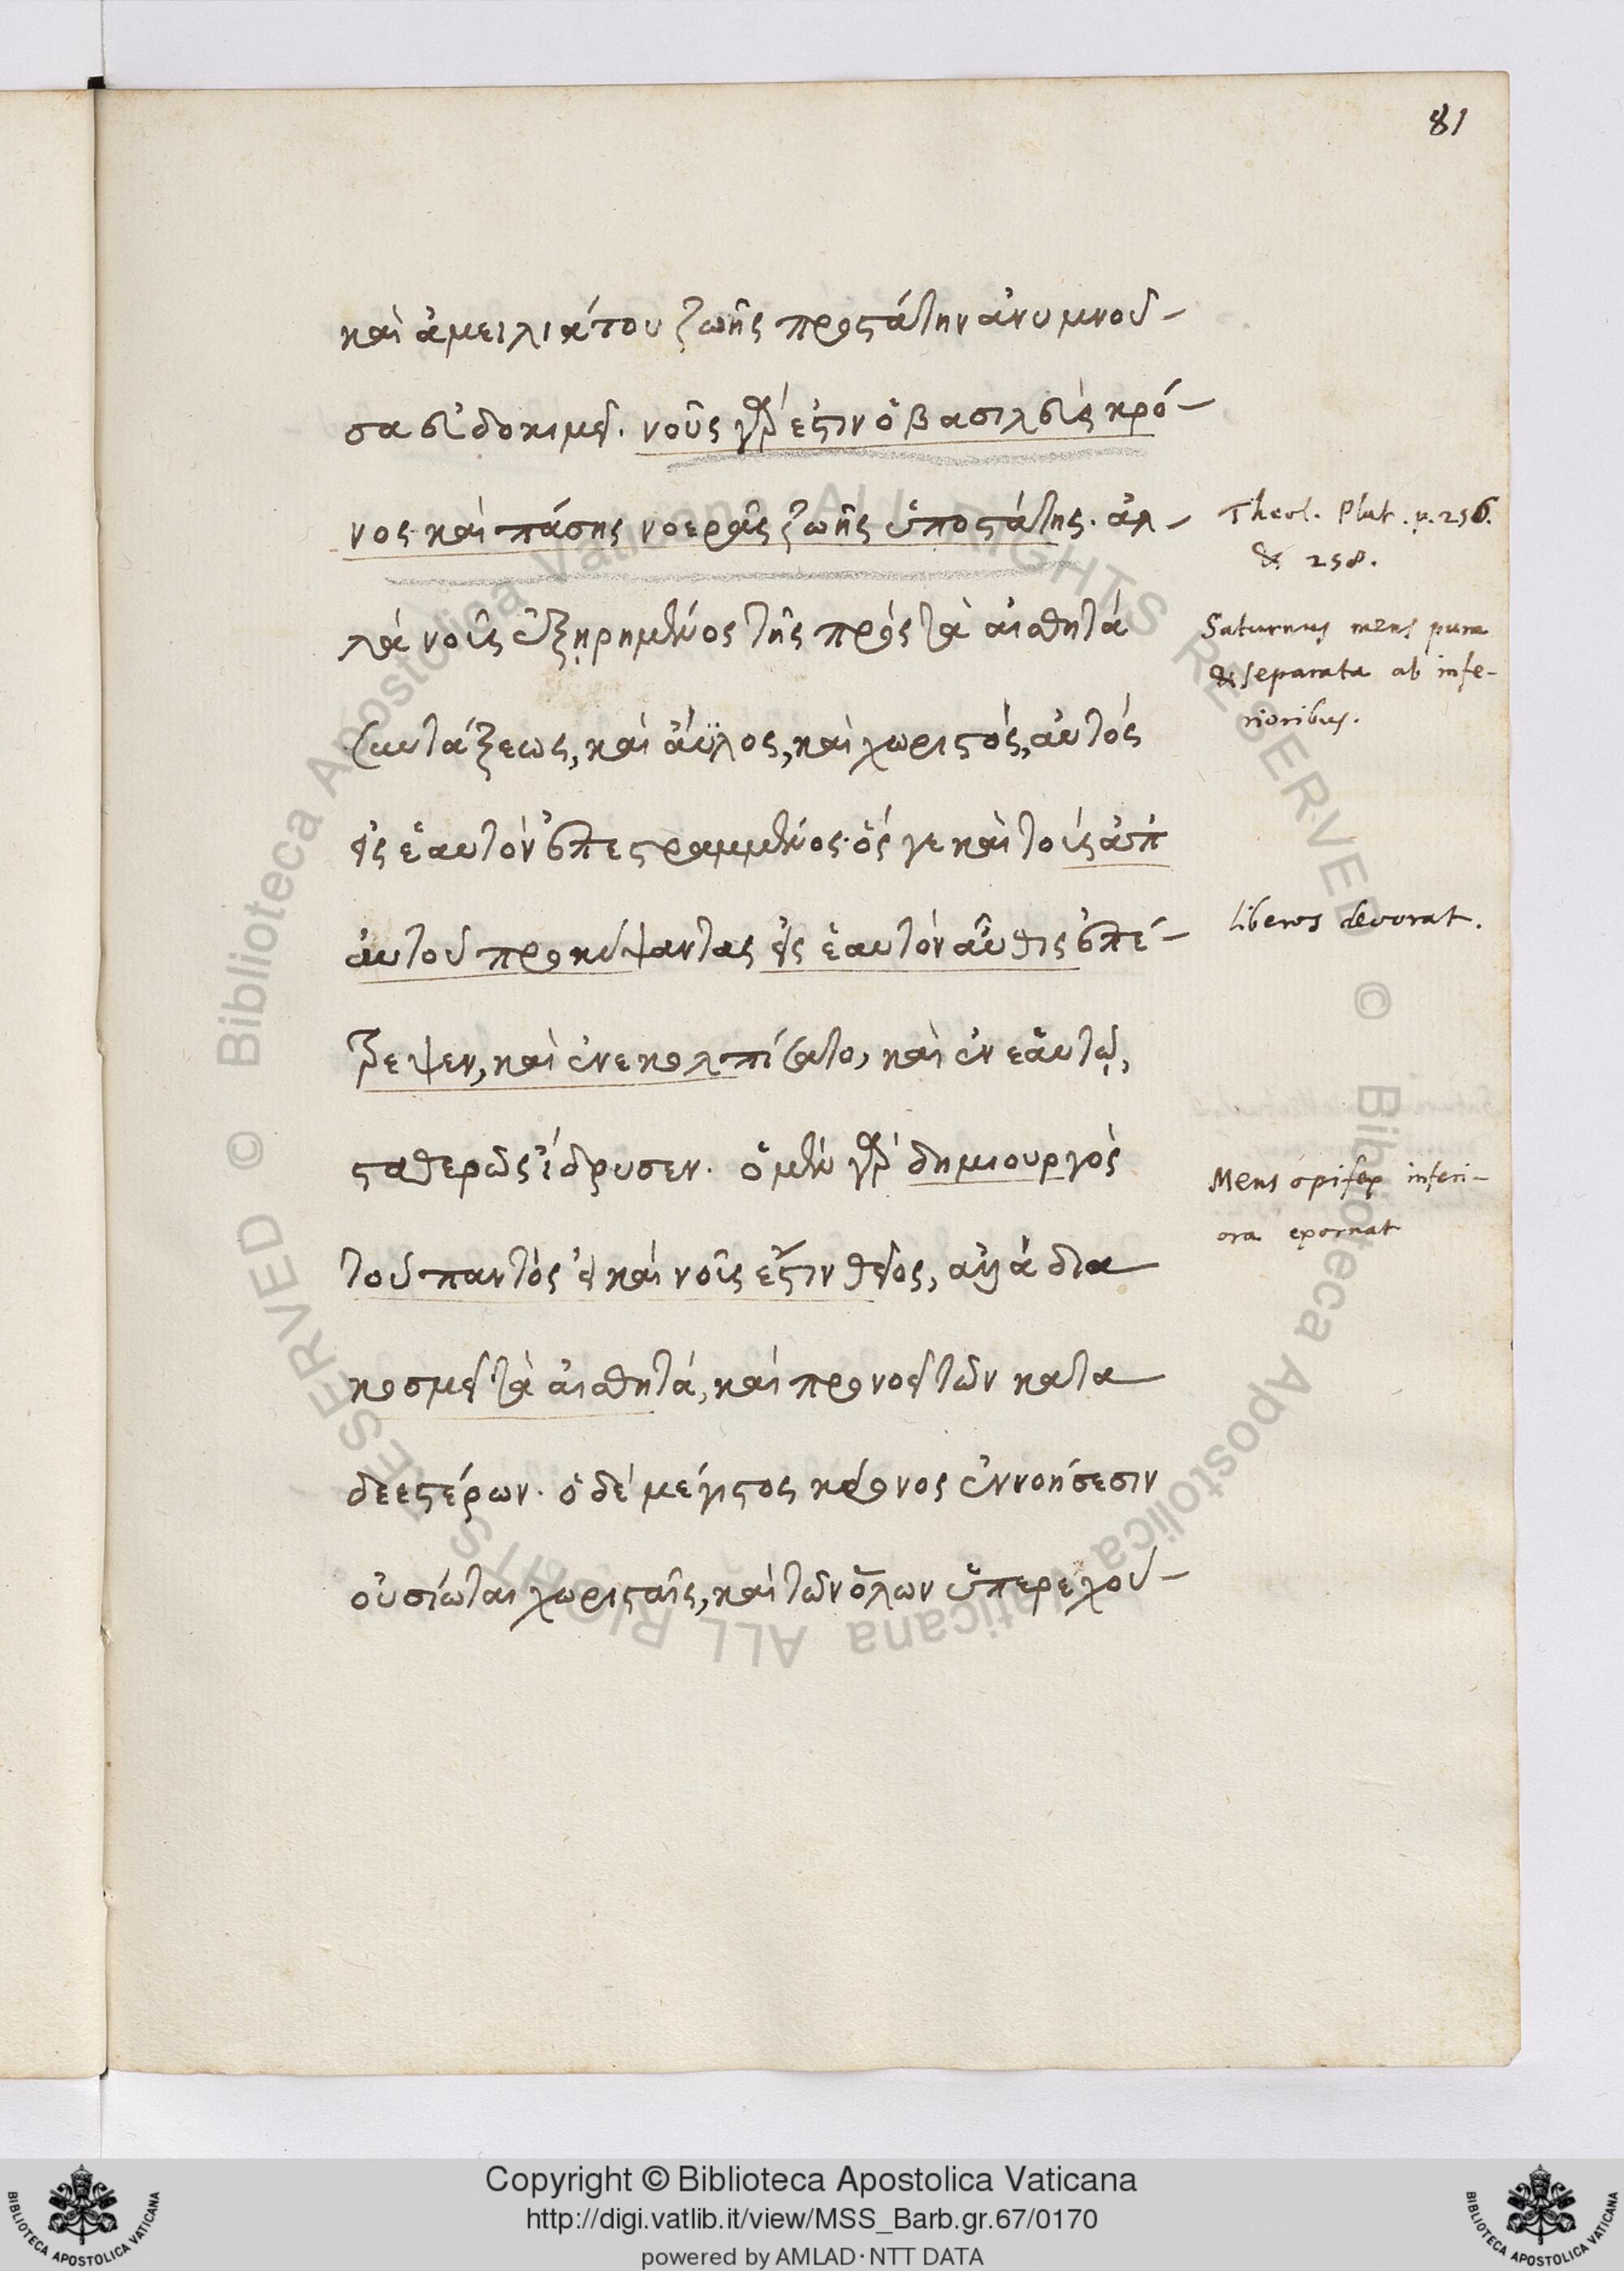 81
καὶ ἀμειλίκτου ζωῆς προστάτην ἀνυμνοῦ-
σα εὐδοκιμεῖ. νοῦς γὰρ ἐστιν ὁ βασιλεὺς κρό-
νος καὶ πάσης νοερᾶς ζωῆς ὑποστάτης. ἀλ-
λὰ νοῦς ἐξῃρημένος τῆς πρὸς τὰ αἰσθητὰ
συντάξεως, καὶ ἄϋλος, καὶ χωριστὸς, αὐτὸς
εἰς ἑαυτὸν ἐπεστραμμένος. ὅς γε καὶ τοὺς ἀπ'
αὐτοῦ προκύψαντας εἰς ἑαυτὸν αὖθις ἐπέ-
στρεψεν, καὶ ἐνεκολπίσατο, καὶ ἐν ἑαυτῷ,
σταθερῶς ἵδρυσεν. ὁ μὲν γὰρ δημιουργὸς
τοῦ παντὸς εἰ καὶ νοῦς ἐστιν θεῖος, ἀλλὰ δια
κοσμεῖ τὰ αἰσθητά, καὶ προνοεῖ τῶν κατα
δεεστέρων. ὁ δὲ μέγιστος κρόνος ἐννοήσεσιν
οὐσίωται χωρισταῖς, καὶ τῶν ὅλων ὑπερεχού-
Theol. Plat. p. 256.
& 258.
Saturnus mens pura
& separata ab infe-
rioribus.
liberos devorat.
Mens opifex inferi-
ora exornat
© Biblioteca Apostolica Vaticana ALL RIGHTS RESERVED © Biblioteca Apostolica Vaticana ALL RIGHTS RESERVED
Copyright © Biblioteca Apostolica Vaticana
http://digi.vatlib.it/view/MSS_Barb.gr.67/0170
powered by AMLAD·NTT DATA
BIBLIOTECA APOSTOLICA VATICANA
BIBLIOTECA APOSTOLICA VATICANA